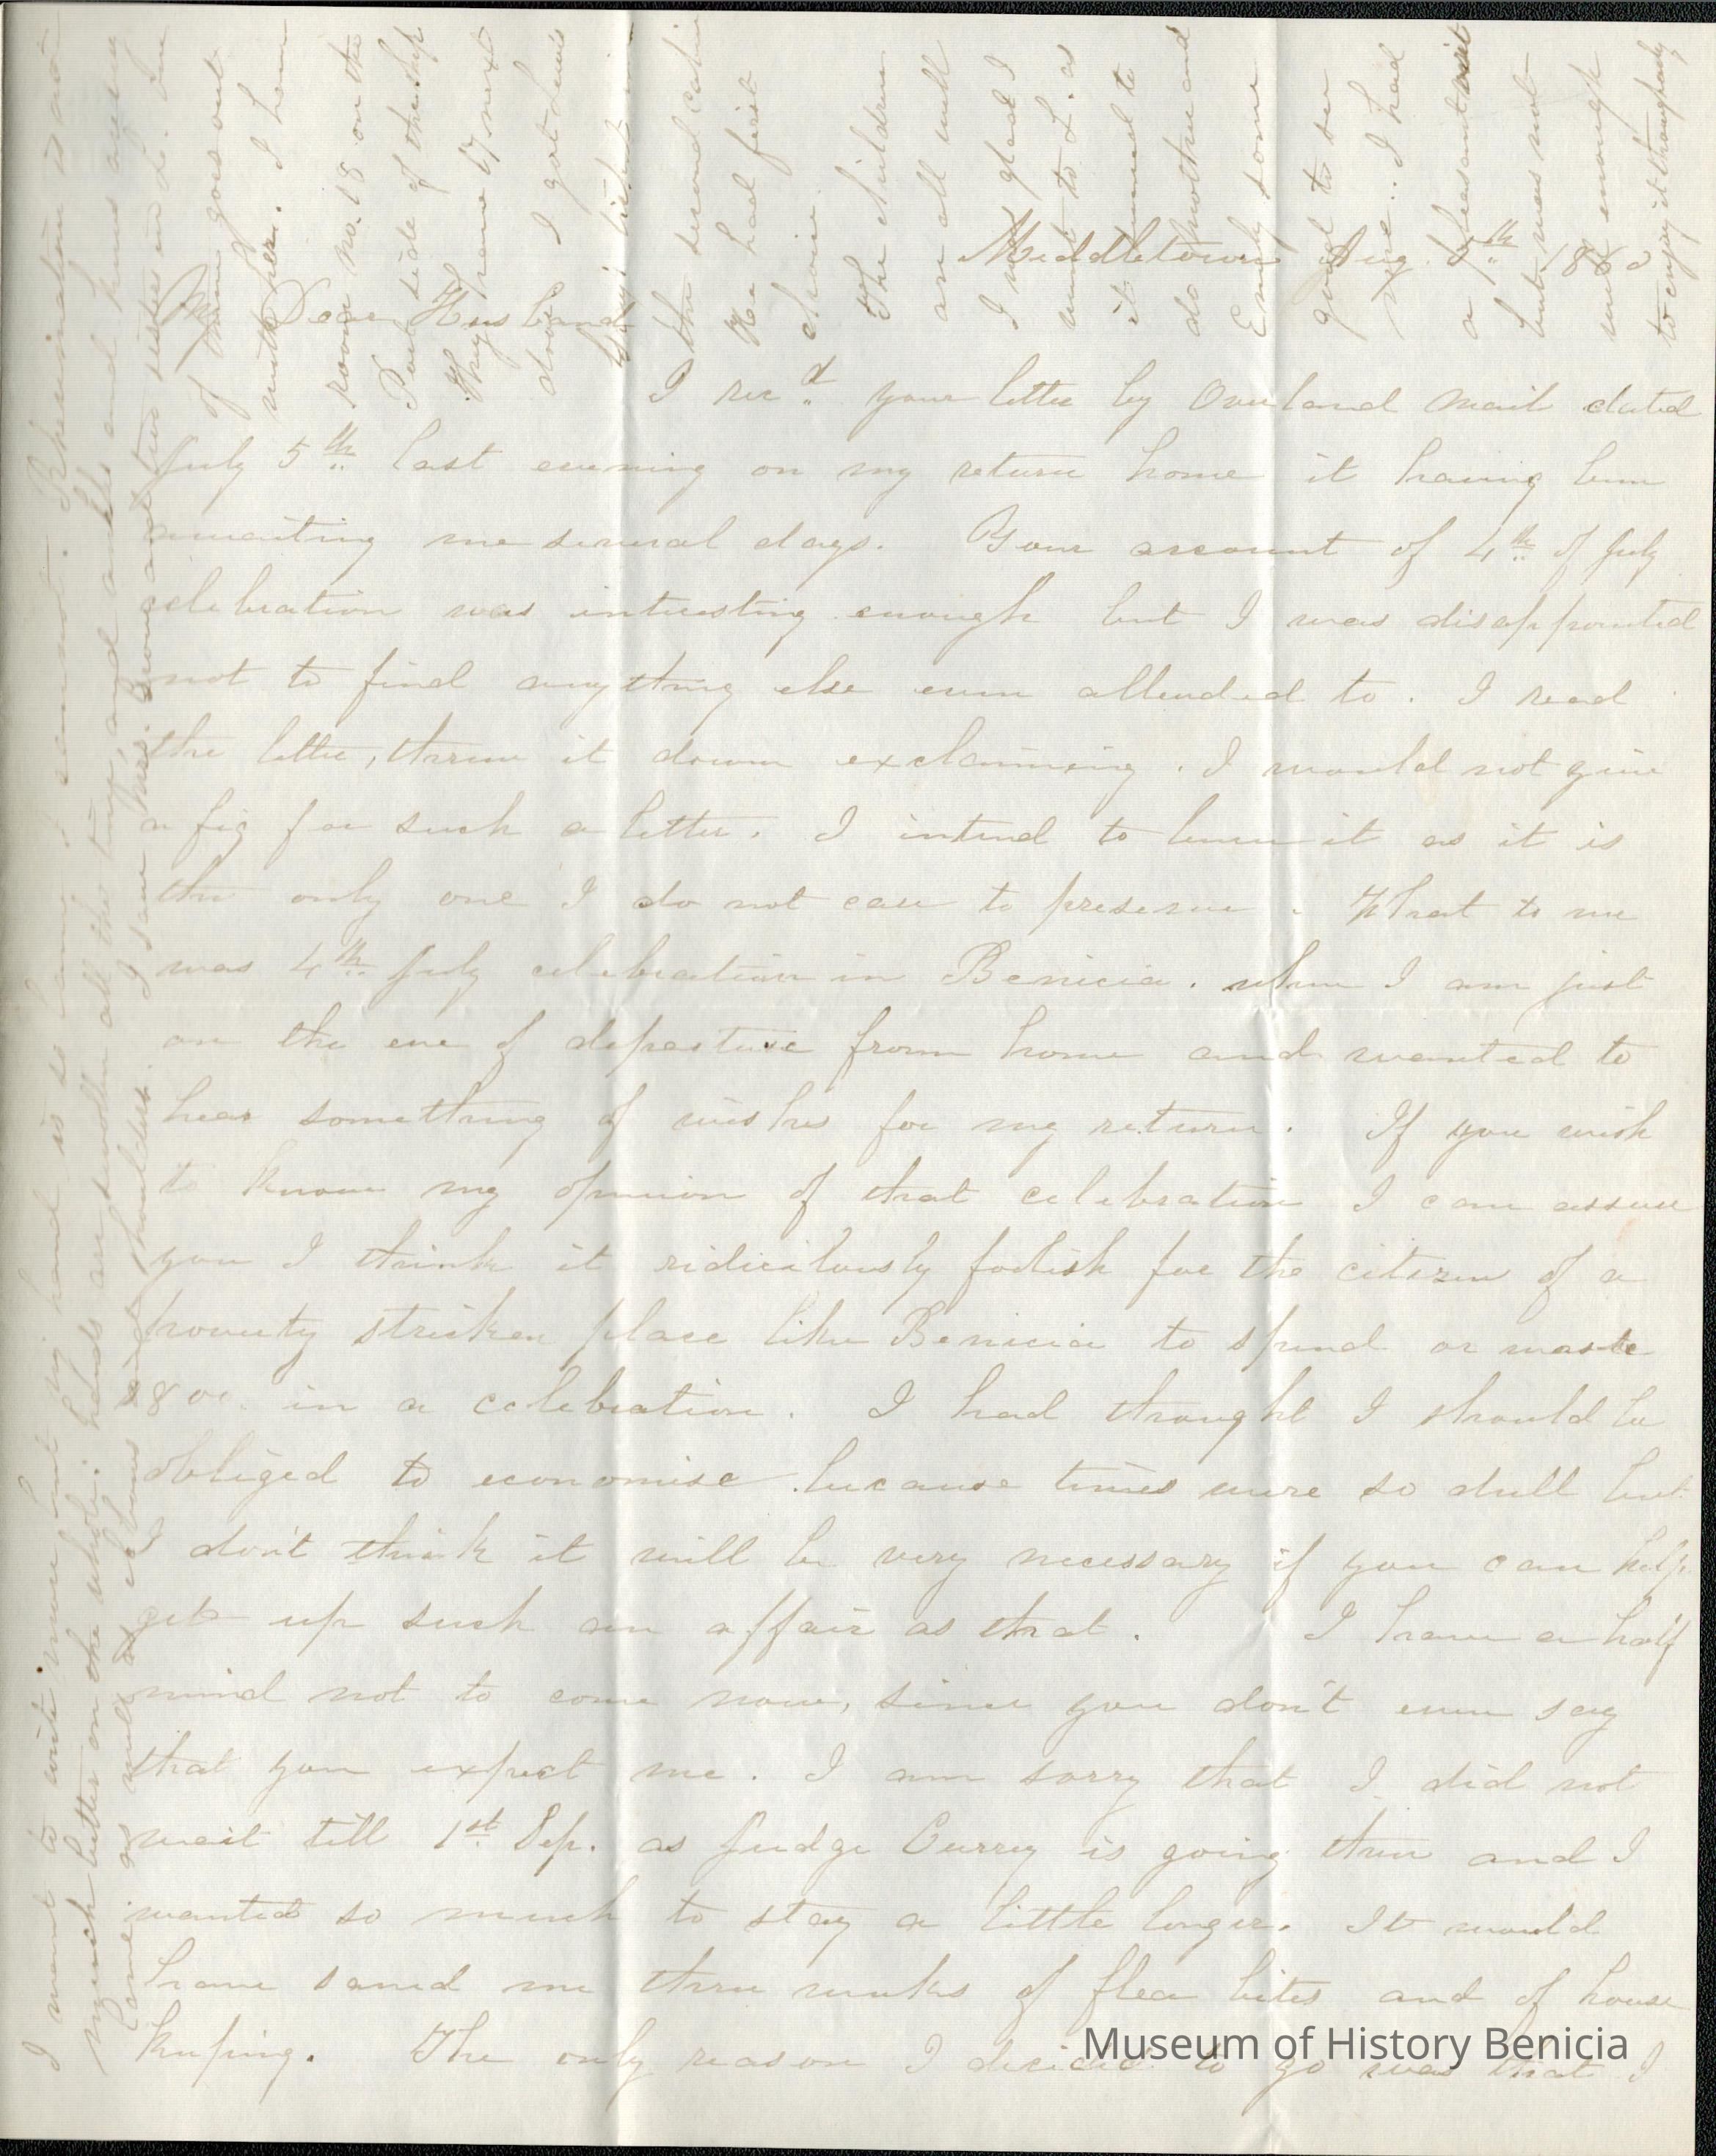 Middletown Aug. 7th 1860
My Dear Husband
I recd your letter by Overland Mail dated
July 5th last evening on my return home it having been
awaiting me several days. Your account of 4th of July
celebration was intersting enough but I was disappointed
not to find anything else even alluded to. I read
the letter, threw it down exclaiming. I would not give
a fig for such a letter. I intend to burn it as it is
the only one I do not care to preserve. What to me
was 4th July celebration in Benicia. when I am just
on the eve of departure from home and wanted to
hear something of wishes for my return. If you wish
to know my opinion of that celebration I can assure
you I think it ridiculously foolish for the citizen of a
poverty striken place like Benicia to spend or waste
$800. in a celebration. I had thought I should be
obliged to economise because times were so dull but
I don't think it will be very necessary if you can help
get up such an affair as that. I have a half
mind not to come now, since you don't even say
that you expect me. I am sorry that I did not
wait till 1st Sep. as Judge Currey is going then and I
wanted so much to stay a little longer. It would
have saved me three weeks of flea bites and of house
keeping. The only reason I decided to go was that I
of mine goes out
with her. I have
room No. 18 on the
Port side of the ship
They have 17 next
door. I got Lewis
the second cabin
He had first
choice
The children
are all well
I was glad I
went to L. as
it seemed to
do mother and
Emily some
good to see
me. I had
a pleasant visit
but was not
well enough
to enjoy it thoroughly
I want to write more but my hand is so lame I cannot. Rheumatism is not
much better on the whole. hands are swollen all the time, and ankles and knees aching
Come as well as elbows and shoulders. I saw Mrs. and two sisters in L. One
Museum of History Benicia